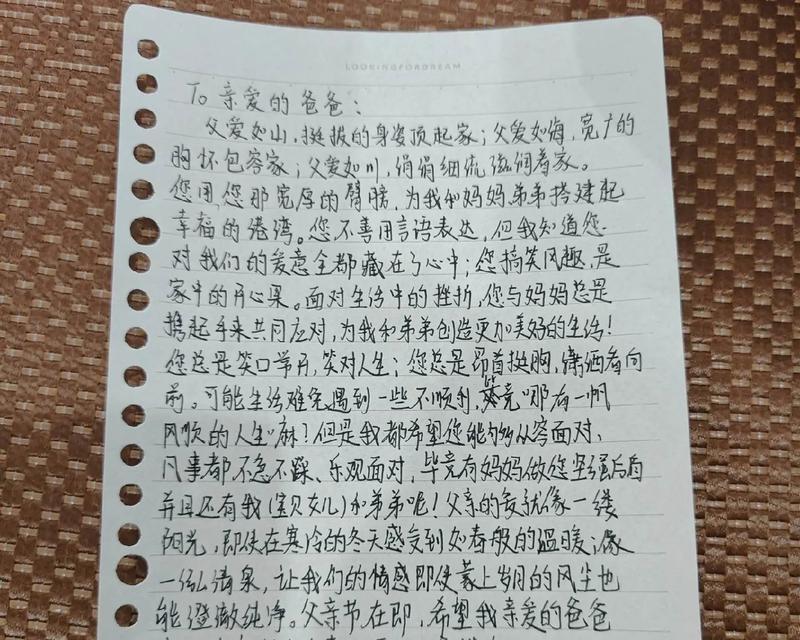 LOOKINGFORDREAM
To 亲爱的爸爸：
父爱如山，挺拔的身姿顶起家；父爱如海，宽广的
胸怀包容家；父爱如川，涓涓细流滋润着家。
您用您那宽厚的臂膀，为我和妈妈弟弟搭建起
幸福的港湾。您不善用言语表达，但我知道您
对我们的爱意全都藏在了心中；您搞笑风趣，是
家中的开心果。面对生活中的挫折，您与妈妈总是
携起手来共同应对，为我和弟弟创造更加美好的生活！
您总是笑口常开，笑对人生；您总是昂首挺胸，潇洒着向
前。可能生活难免遇到一些不顺利，毕竟“哪有一帆
风顺的人生”嘛！但是我都希望您能够从容面对，
凡事都不急不躁、乐观面对，毕竟有妈妈做您坚强后盾
并且还有我（宝贝女儿）和弟弟呢！父亲的爱就像一缕
阳光，即使在寒冷的冬天感受到如春般的温暖；像
一泓清泉，让我们的情感即使蒙上岁月的风尘也
能澄澈纯净。父亲节在即，希望我亲爱的爸爸